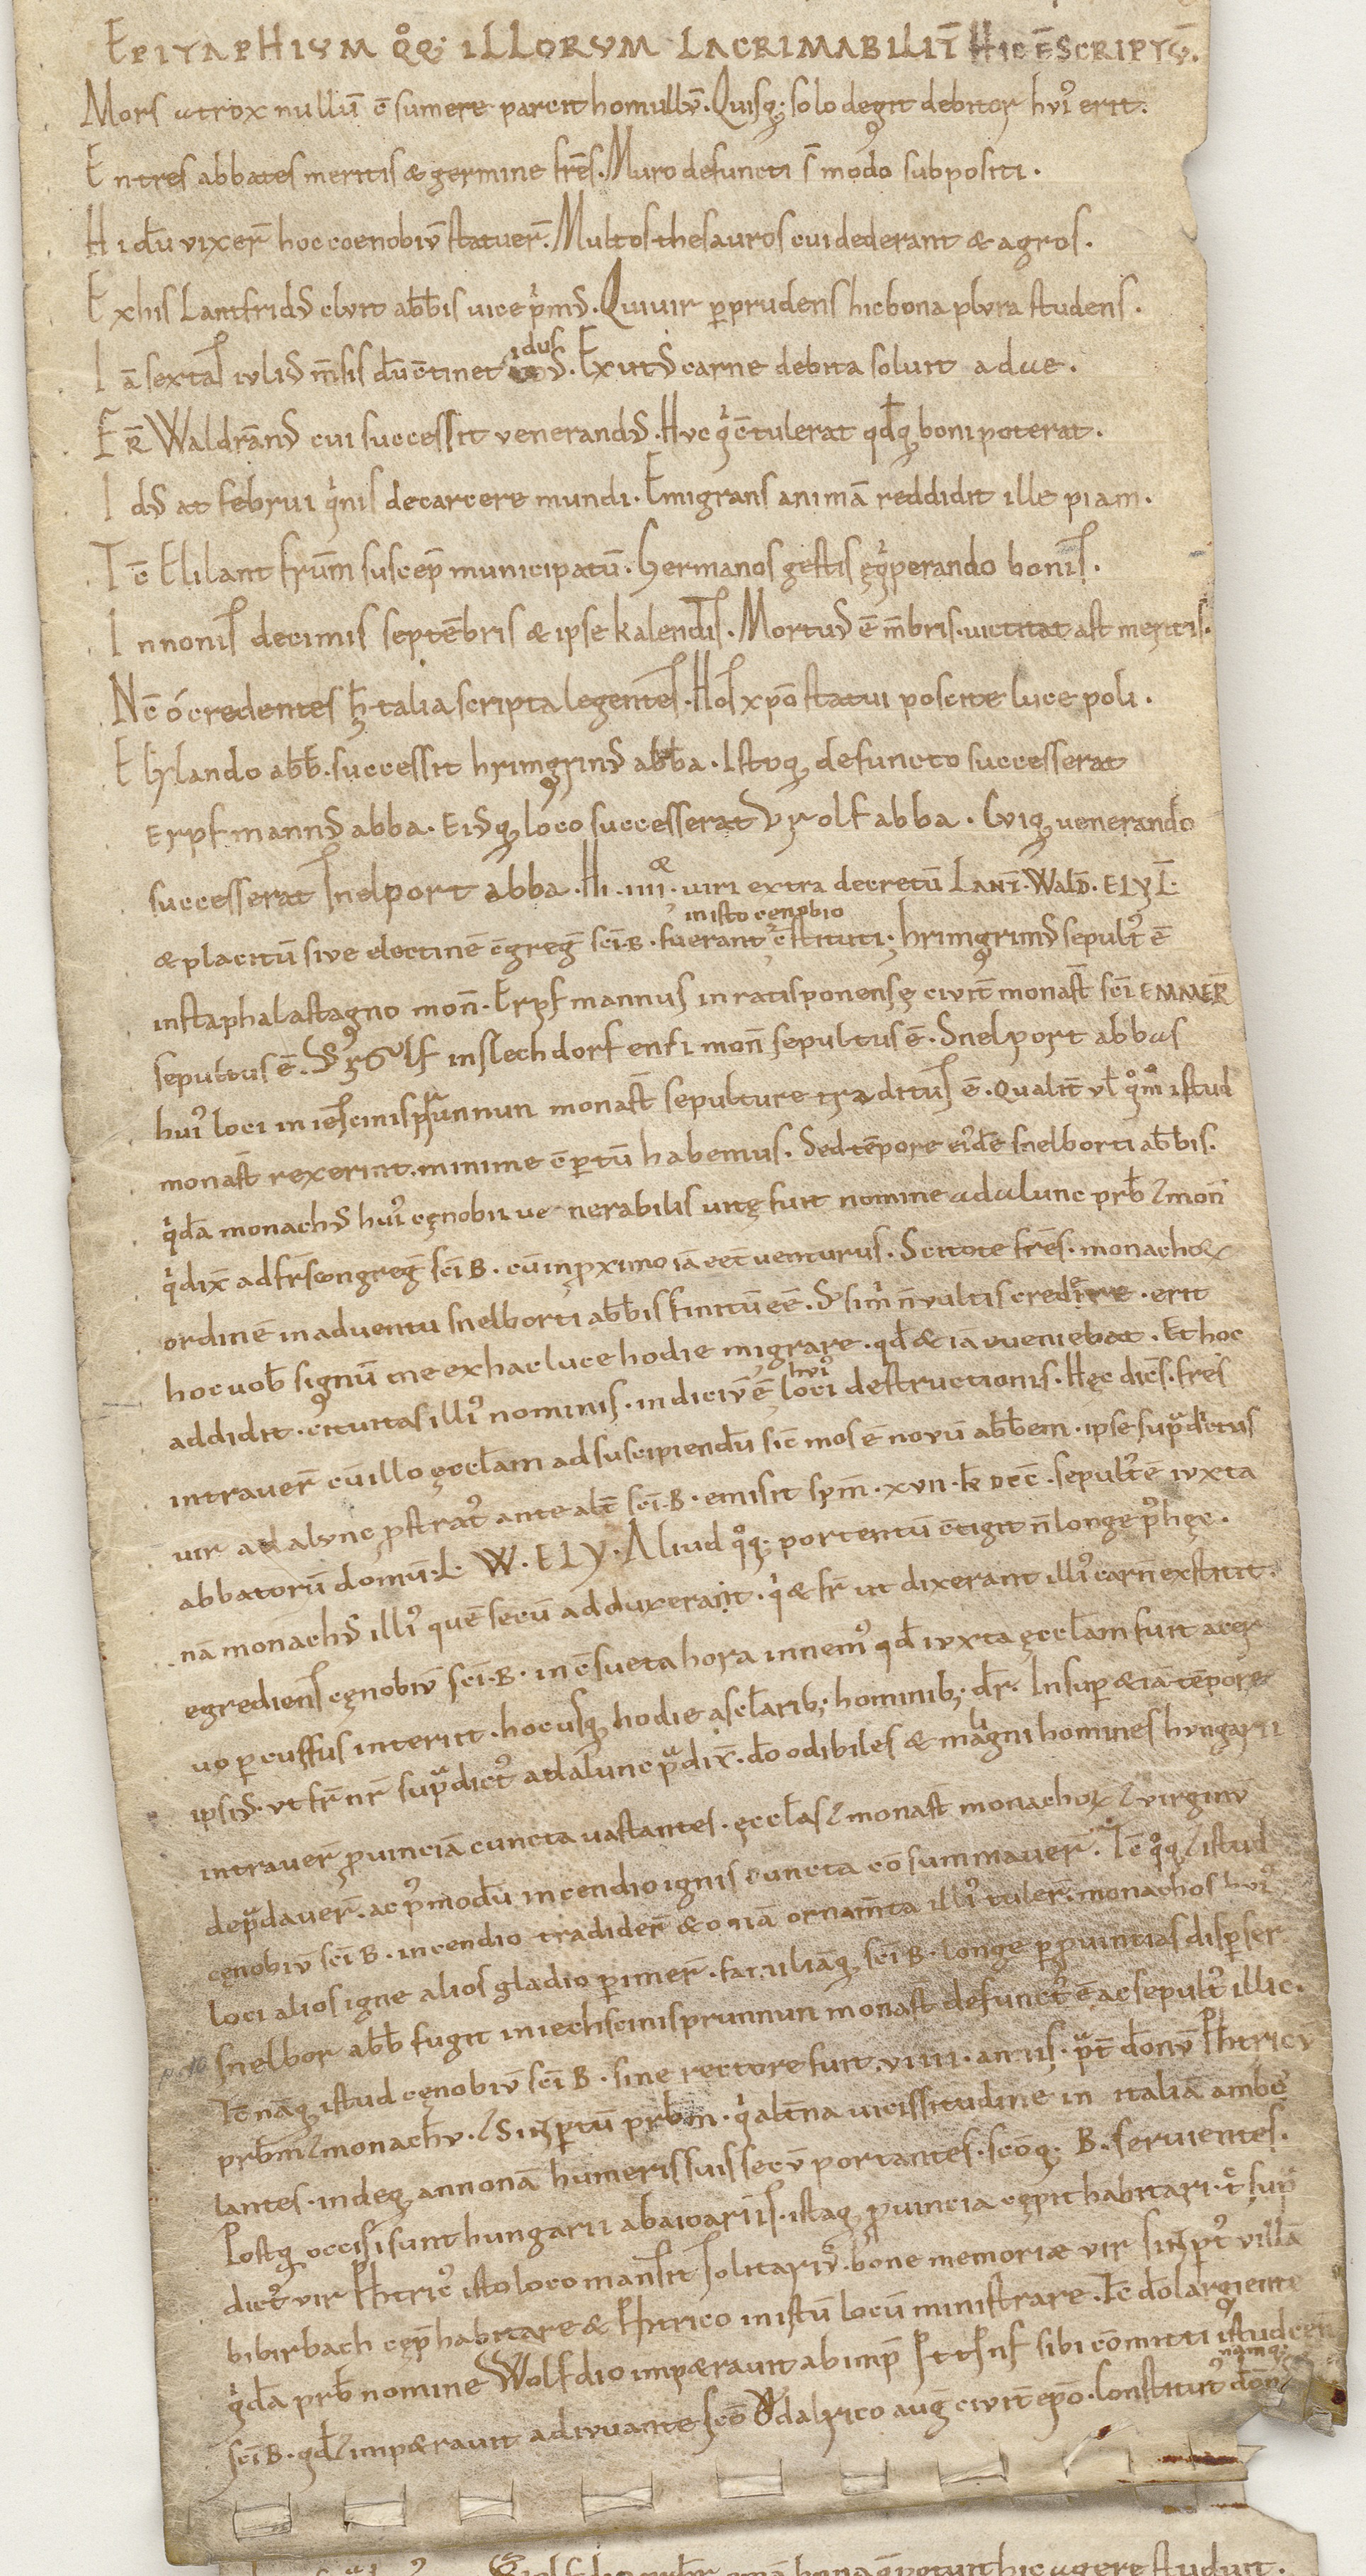 EPITAPHIVM QͦQ: ILLORVM LACRIMABILIT̄ HIC ē SCRIPTV̄.
Mors atrox nullū c̄sumere parcit homullv̄. Quisq; solo degit debitor hvi᾿ erit.
En tres abbates meritis & germine frēs. Muro defuncti s̄ modo subpositi.
Hi dū vixer̄ hoc coenobiv̄ statuer̄. Multos thesauros cui dederant & agros.
Ex his Lantfrid᾿ clvit abb̄is uice p̓mᵭ. Qui uir ꝑprudens hic bona plvra studens.
Iā sextas ivli᾿ m̄sis dū c̄tinet idus. Exut᾿ carne debita soluit aduę.
Fr̄ Waldrān᾿ cui successit venerand᾿. Hvc q̓ c̄tulerat qd̄q; boni poterat.
Id᾿ at februi q̓nis de carcere mundi. Emigrans animā reddidit ille piam.
Tc̄ Elilant frūm suscep̄ municipatū. Germanos gestis ęq̓perando bonis.
In nonis decimis septēbris & ipse kalendis. Mortu᾿ ē m̄bris. uictitat ast meritis.
Nc̄ ó credentes h̄ talia scripta legentes. Hos xp̄o statui poscite luce poli.
Elylando abb̄. successit hringrin᾿ abb̄a. Istoq; defuncto successerat
Erpfmann᾿ abba. Eidq; loco successerat Vrolf abba. Cviq; uenerando
successerat Snelport abba. Hi .IIII. uiri extra decretū LANT̄. WALD̄. ELYL̄.
& placitū sive electinē c̄greḡ sc̄i .B. fuerant in isto cęnobio c̄stituti. hringrim᾿ sepult᾿ ē
in staphalastagno mon̄. Erpfmannus in ratisponensę civit̄ monast̄ sc̄i EMMER̄
sepultus ē. Vrolf in slechdorfensi mon̄ sepultus ē. Snelport abbas
hui᾿ loci in iescinisprunnun monast̄ sepulturę traditus ē. Qualit̄ vl̄ qͦmͦ istud
monast̄ rexerint. minime c̄ꝑtū habemus. Sed tēpore ei᾿dē snelborti abb̄is.
q̓dā monach᾿ hui᾿ cęnobii uenerabilis uitę fuit nomine adalunc prb̄ ⁊ mon̄
q̓ dix̄ ad fr̄s congreḡ sc̄i B. cū in ꝓximo iā eēt venturus. Scitote frēs. monachoꝝ
ordinē in aduentu snelborti abb̄is finitū eē. & si m̓ n̄ vultis credere. erit
hoc uob̄ signū me ex hac luce hodie migrare. qd̄ & iā eueniebat. Et hoc
addidit. c̄tuitas illi᾿ nominis. indiciv̄ ē hui᾿ loci destructionis. Hęc dicēs. frēs
intrauer̄ cū illo ęccl̄am ad suscipiendū sic̄ mos ē novū abb̄em. ipse sup̄dictus
uir adalvnc ꝓstrat᾿ ante alt̄ sc̄i .B. emisit sp̄m. xvii. kl̄ dec̄. sepult᾿ ē ivxta
abbatorū domū. L. W. ELY. Aliud qͦq; portentū c̄tigit n̄ longe p᾿ hęc.
nā monach᾿ illi᾿ quē secū adduxerant. q̓ & fr̄ ut dixerant illi᾿ carn̄ exstitit.
egrediens cęnobiv̄ sc̄i .B. in c̄sueta hora in nem᾿ qd̄ ivxta ęccl̄am fuit acer
uo ꝑcussus interiit. hoc usq; hodie a scl̄arib; hominib; dr̄. Insuꝑ & iā tēpore
ipsi᾿. ut fr̄ nr̄ sup̄dict᾿ adalunc p̄dix̄. dō odibiles & maligni homines hvngarii
intrauer̄ ꝓuinciā cuncta uastantes. ęccl̄as ⁊ monast̄ monachoꝝ ⁊ virginv̄
dep̄dauer̄. ac p᾿modū incendio ignis cuncta cōsummauer̄. Tc̄ qͦq; ⁊ istud
cęnobiv̄ sc̄i B. incendio tradider̄ & om̄a ornam̄ta illi᾿ tuler̄. monachos hvi᾿
loci alios igne alios gladio ꝑimer̄. familiāq; sc̄i B. longe ꝑ ꝓuintias disꝑser̄
snelbor abb̄ fugit in iechscinisprunnun monast̄ defunct᾿ ē ac sepult᾿ illic.
Tc̄ nāq; istud cęnobiv̄ sc̄i B. sine rectore fuit .viiii. annis. p̄t̄ dōnv̄ Rihtricv̄
prb̄m ⁊ monachv̄. ⁊ Sinꝑtū prb̄m. q̓ alt̄na uicissitudine in italiā ambu
lantes. indeq; annonā humeris suis secū portantes. sc̄oq; B. seruientes.
Postq; occisi sunt hungarii a baioariis. istaq; ꝓuincia cępit habitari. t̄ sup̄
dict᾿ vir Rihtric᾿ isto loco mansit solitari᾿. bone memoriæ vir sinꝑt᾿ villā
bibirbach cęp̄ habitare & Rihtrico in istū locū ministrare. Tc̄ dō largiente
q̓dā prb̄ nomine Wolfdio impetrauit ab imp̄ sibi cōmitti istud cen̄
sc̄i B. qd̄ ⁊ impetrauit adivuante sc̄o Vodalrico auḡ civit̄ ep̄o. Constitut᾿ namq; dōn᾿